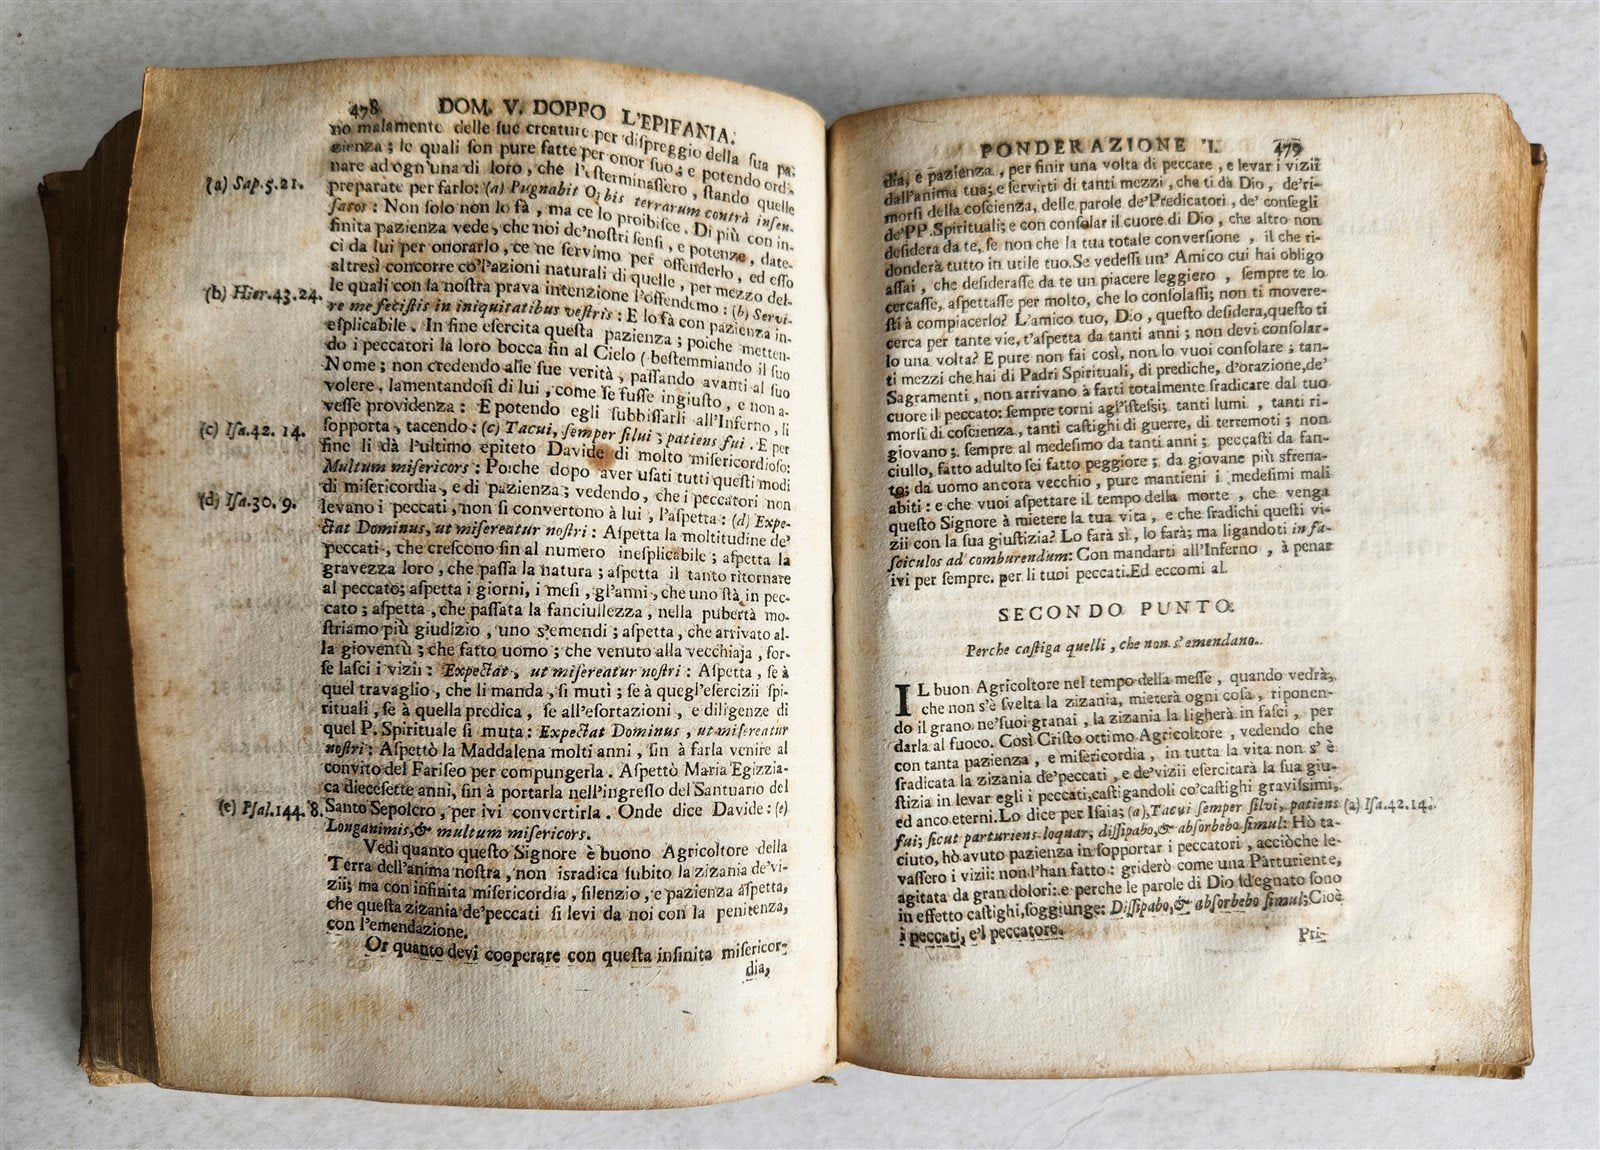 478 DOM. V. DOPPO L'EPIFANIA.
no malamente delle sue creature per dispreggio della sua pa-
zienza; le quali son pure fatte per onor suo; e potendo ordi-
nare ad ogn'una di loro, che l'esterminassero, stando quelle
(a) Sap. 5. 21.
preparate per farlo: (a) Pugnabit Orbis terrarum contrà insen-
satos: Non solo non lo fà, ma ce lo proibisce. Di più con in-
finita pazienza vede, che noi de'nostri sensi, e potenze, date-
ci da lui per onorarlo, ce ne servimo per offenderlo, ed esso
altresì concorre co'l'azioni naturali di quelle, per mezzo del-
(b) Hier. 43. 24.
le quali con la nostra prava intenzione l'offendemo: (b) Servi-
re me fecistis in iniquitatibus vestris: E lo fà con pazienza in-
esplicabile. In fine esercita questa pazienza; poiche metten-
do i peccatori la loro bocca fin al Cielo (bestemmiando il suo
Nome; non credendo alle sue verità, passando avanti al suo
volere, lamentandosi di lui, come se fusse ingiusto, e non a-
vesse providenza: E potendo egli subbissarli all'Inferno, li
(c) Isa. 42. 14.
sopporta, tacendo: (c) Tacui, semper silui; patiens fui. E per
fine li dà l'ultimo epiteto Davide di molto misericordioso:
Multum misericors: Poiche dopo aver usati tutti questi modi
di misericordia, e di pazienza; vedendo, che i peccatori non
(d) Isa. 30. 9.
levano i peccati, non si convertono à lui, l'aspetta: (d) Expe-
ctat Dominus, ut misereatur nostri: Aspetta la moltitudine de'
peccati, che crescono fin al numero inesplicabile; aspetta la
gravezza loro, che passa la natura; aspetta il tanto ritornare
al peccato; aspetta i giorni, i mesi, gl'anni, che uno stà in pec-
cato; aspetta, che passata la fanciullezza, nella pubertà mo-
striamo più giudizio, uno s'emendi; aspetta, che arrivato al-
la gioventù; che fatto uomo; che venuto alla vecchiaja, for-
se lasci i vizii: Expectat, ut misereatur nostri: Aspetta, se à
quel travaglio, che li manda, si muti; se à quegl'esercizii spi-
rituali, se à quella predica, se all'esortazioni, e diligenze di
quel P. Spirituale si muta: Expectat Dominus, ut misereatur
nostri: Aspettò la Maddalena molti anni, sin à farla venire al
convito del Fariseo per compungerla. Aspettò Maria Egizzia-
ca diecesette anni, sin à portarla nell'ingresso del Santuario del
(e) Psal. 144. 8.
Santo Sepolcro, per ivi convertirla. Onde dice Davide: (e)
Longanimis, & multum misericors.
Vedi quanto questo Signore è buono Agricoltore della
Terra dell'anima nostra, non isradica subito la zizania de'vi-
zii; ma con infinita misericordia, silenzio, e pazienza aspetta,
che questa zizania de'peccati si levi da noi con la penitenza,
con l'emendazione.
Or quanto devi cooperare con questa infinita misericor-
dia,
PONDERAZIONE I. 479
dia, e pazienza, per finir una volta di peccare, e levar i vizii
dall'anima tua; e servirti di tanti mezzi, che ti dà Dio, de'ri-
morsi della coscienza, delle parole de'Predicatori, de' consegli
de'PP. Spirituali; e con consolar il cuore di Dio, che altro non
desidera da te, se non che la tua totale conversione, il che ri-
donderà tutto in utile tuo. Se vedessi un' Amico cui hai obligo
assai, che desiderasse da te un piacere leggiero, sempre te lo
cercasse, aspettasse per molto, che lo consolassi; non ti movere-
sti à compiacerlo? L'amico tuo, Dio, questo desidera, questo ti
cerca per tante vie, t'aspetta da tanti anni; non devi consolar-
lo una volta? E pure non fai così, non lo vuoi consolare; tan-
ti mezzi che hai di Padri Spirituali, di prediche, d'orazione, de'
Sagramenti, non arrivano à farti totalmente sradicare dal tuo
cuore il peccato: sempre torni agl'istessi; tanti lumi, tanti ri-
morsi di coscienza, tanti castighi di guerre, di terremoti; non
giovano; sempre al medesimo da tanti anni; peccasti da fan-
ciullo, fatto adulto sei fatto peggiore; da giovane più sfrena-
to; da uomo ancora vecchio, pure mantieni i medesimi mali
abiti: e che vuoi aspettare il tempo della morte, che venga
questo Signore à mietere la tua vita, e che sradichi questi vi-
zii con la sua giustizia? Lo farà sì, lo farà; ma ligandoti in fa-
sciculos ad comburendum: Con mandarti all'Inferno, à penar
ivi per sempre. per li tuoi peccati. Ed eccomi al
SECONDO PUNTO.
Perche castiga quelli, che non s'emendano.
IL buon Agricoltore nel tempo della messe, quando vedrà,
che non s'è svelta la zizania, mieterà ogni cosa, riponen-
do il grano ne'suoi granai, la zizania la ligherà in fasci, per
darla al fuoco. Così Cristo ottimo Agricoltore, vedendo che
con tanta pazienza, e misericordia, in tutta la vita non s' è
sradicata la zizania de'peccati, e de'vizii esercitarà la sua giu-
stizia in levar egli i peccati, castigandoli co'castighi gravissimi,
ed anco eterni. Lo dice per Isaia; (a), Tacui semper silvi, patiens
(a) Isa. 42. 14.
fui; sicut parturiens loquar, dissipabo, & absorbebo simul: Hò ta-
ciuto, hò avuto pazienza in sopportar i peccatori, acciòche le-
vassero i vizii: non l'han fatto: griderò come una Parturiente,
agitata da gran dolori: e perche le parole di Dio sdegnato sono
in effetto castighi, soggiunge: Dissipabo, & absorbebo simul; Cioè
i peccati, e'l peccatore.
Pri-